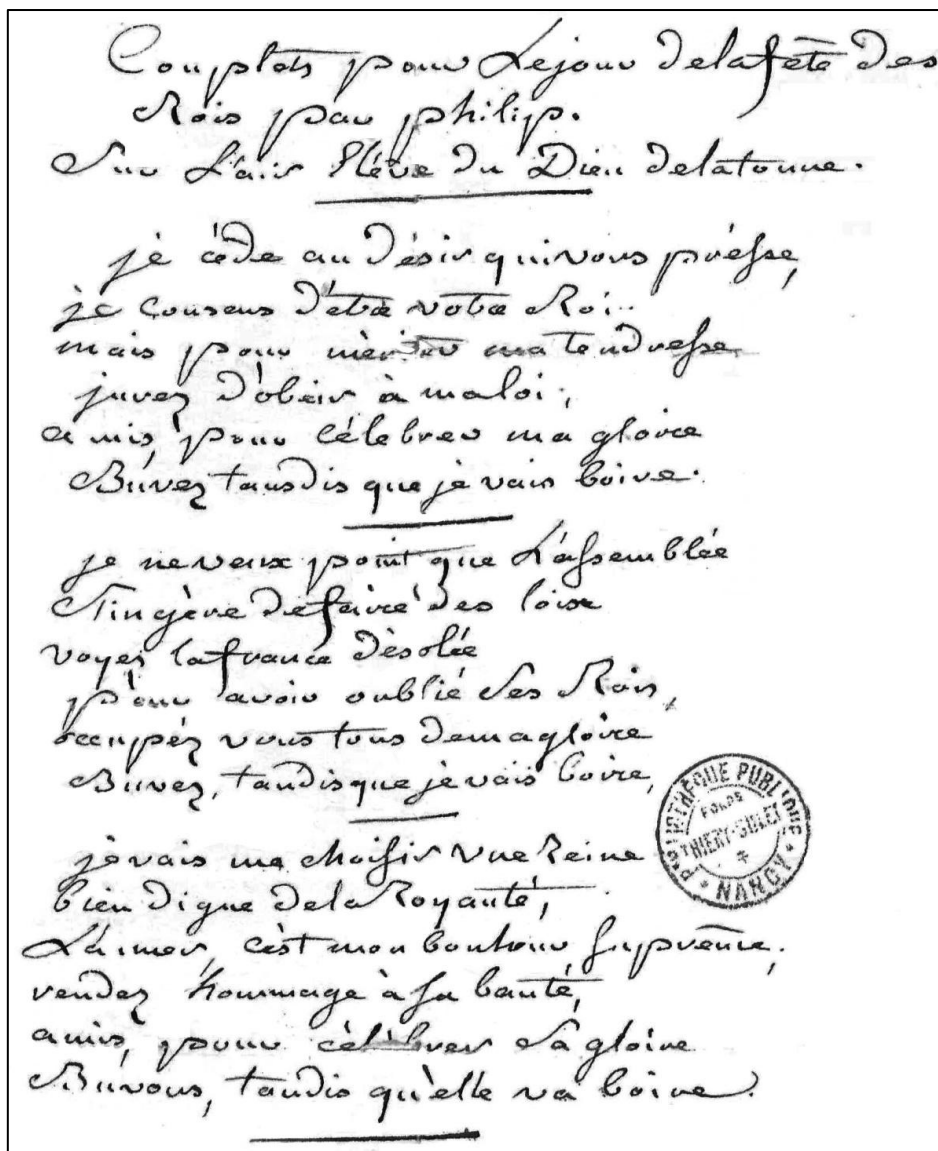 Couplets pour Lejour delafête des
Rois par philip.
Sur L'air Elève du Dieu delatonne.
jè cède au Désir quivous prèsse,
je consens d'être votre Roi..
mais pour mèriter ma tendresse
jurez D'obéir à maloi;
amis, pour célebrer ma gloire
Bûvez tansdis que jè vais boire.
je neveux point que L'assemblée
S'ingère defaire des loix
voyez lafrance dèsolée
pour avoir oublié ses Rois,
occupéz vous tous demagloire
Buvez, tandisque je vais boire,
jevais me choisir une Reine
bien digne dela Royauté,
L'aimer, c'est mon bonheur suprême,
rendez hommage à sa bauté,
amis, pour cèlèbrer sa gloire
Bûvons, tandis qu'elle va boire.
BIBLIOTHÈQUE PUBLIQUE
FONDS
THIERY-SOLET
NANCY